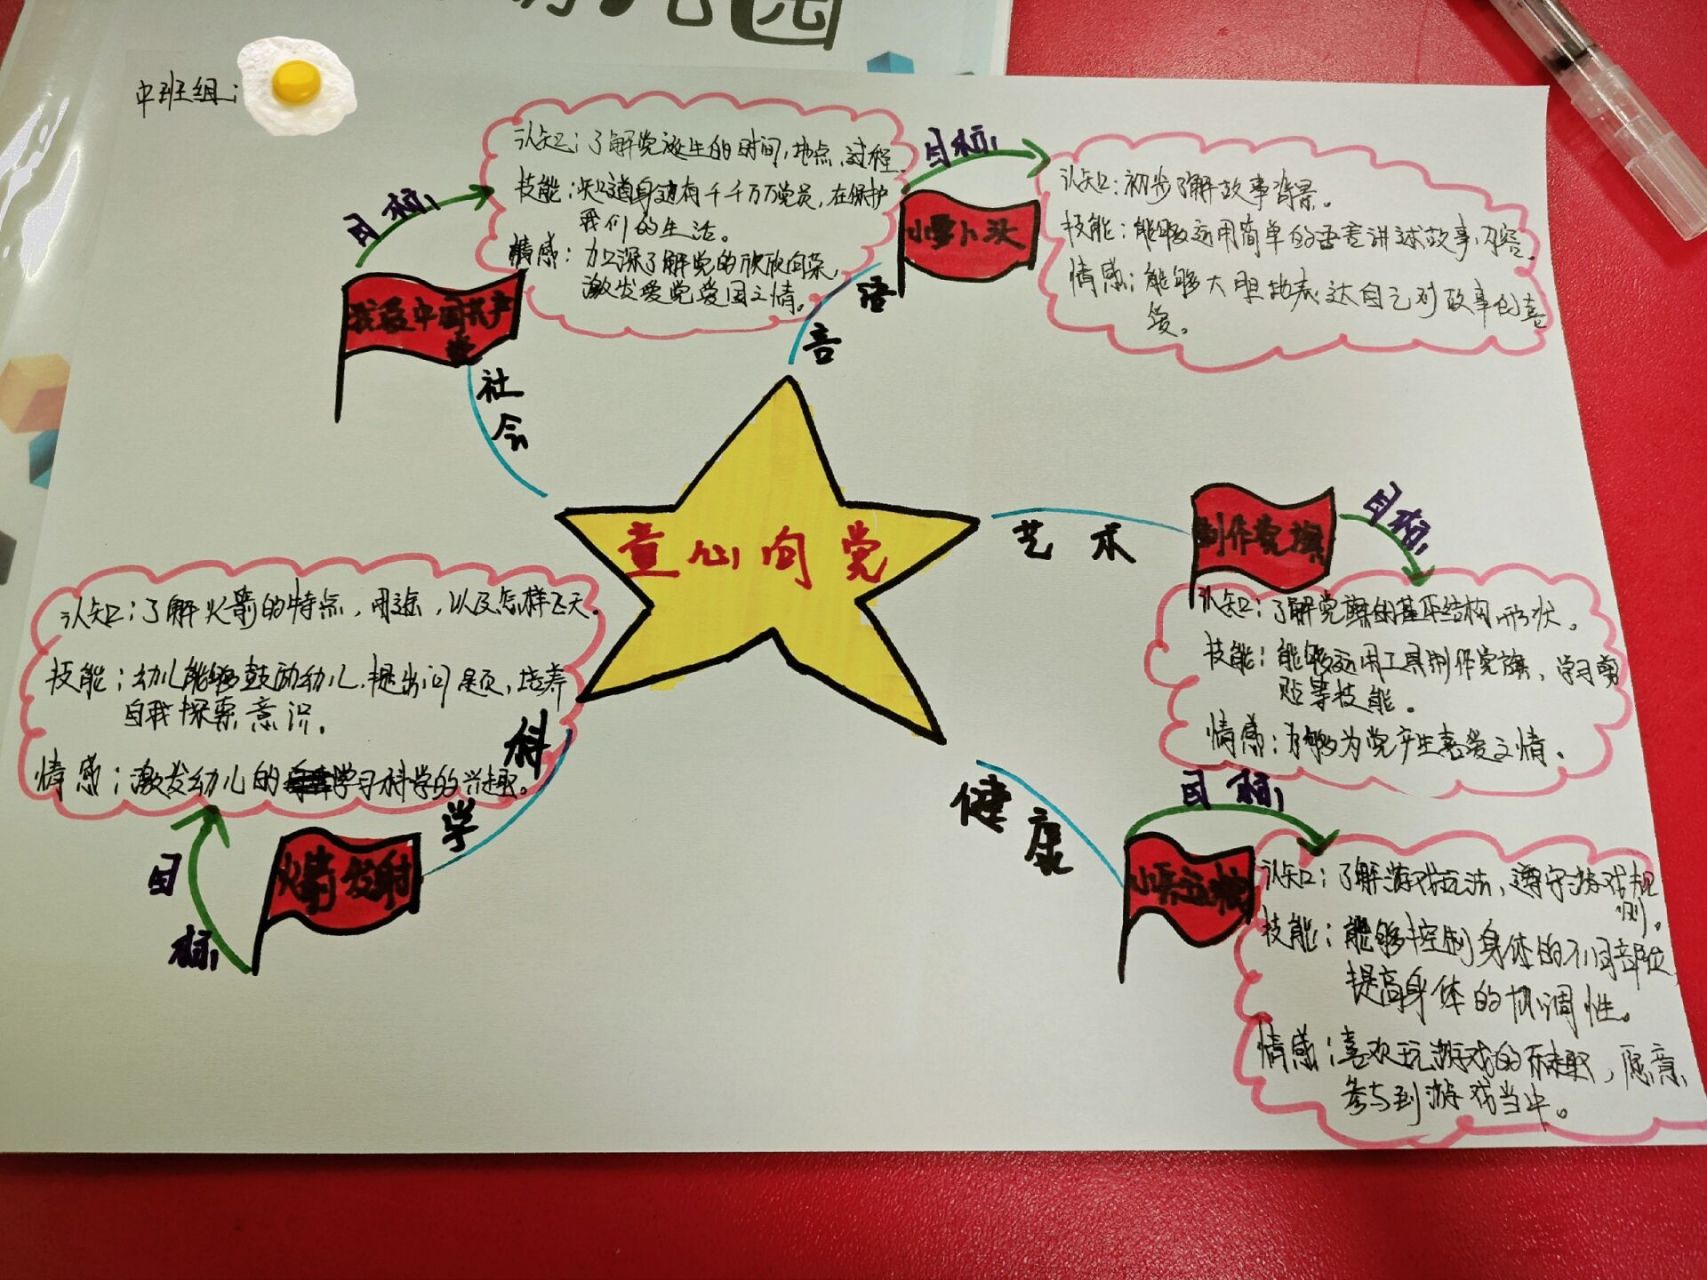 中班组:
目标
认知:了解党诞生的时间,地点,过程.
技能:知道身边有千千万万党员,在保护
我们的生活。
情感:加深了解党的欣欣向荣,
激发爱党爱国之情。
我爱中国共产
党
社会
目标
小萝卜头
语言
认知:初步了解故事背景。
技能:能够运用简单的语言讲述故事内容。
情感:能够大胆地表达自己对故事的喜
爱。
童心向党
艺术
制作党旗
目标
认知:了解党旗的基本结构,形状。
技能:能够运用工具制作党旗,学习剪
贴等技能。
情感:能够为党产生喜爱之情。
认知:了解火箭的特点,用途,以及怎样飞天。
技能:幼儿能够鼓励幼儿.提出问题,培养
自我探索意识.
情感:激发幼儿的学习科学的兴趣。
科学
目标
火箭发射
健康
目标
认知:了解游戏玩法,遵守游戏规
则。
技能:能够控制身体的不同部位
提高身体的协调性。
情感:喜欢玩游戏的乐趣,愿意
参与到游戏当中。